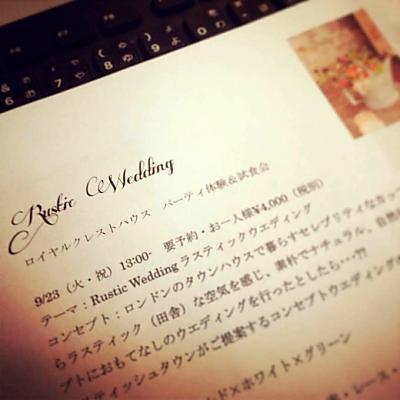 Rustic Wedding
ロイヤルクレストハウス パーティ体験＆試食会
9/23（火・祝）13:00- 要予約・お一人様¥4,000（税別）
テーマ：Rustic Wedding ラスティックウエディング
コンセプト：ロンドンのタウンハウスで暮らすセレブリティなカップ
らラスティック（田舎）な空気を感じ、素朴でナチュラル、自然
プトにおもてなしのウエディングを行ったとしたら…??
ティッシュタウンがご提案するコンセプトウエディング
ド×ホワイト×グリーン
レース・